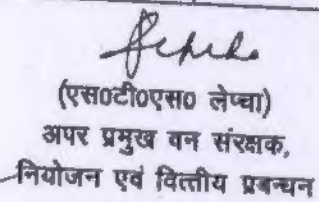 (एस०टी०एस० लेप्चा)
अपर प्रमुख वन संरक्षक,
नियोजन एवं वित्तीय प्रबन्धन